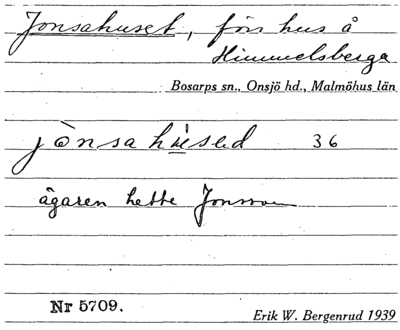 Jonsahuset, förr hus å
Himmelsberga
Bosarps sn., Onsjö hd., Malmöhus län
jònsahùsed 36
ägaren hette Jonsson
Nr 5709.
Erik W. Bergenrud 1939